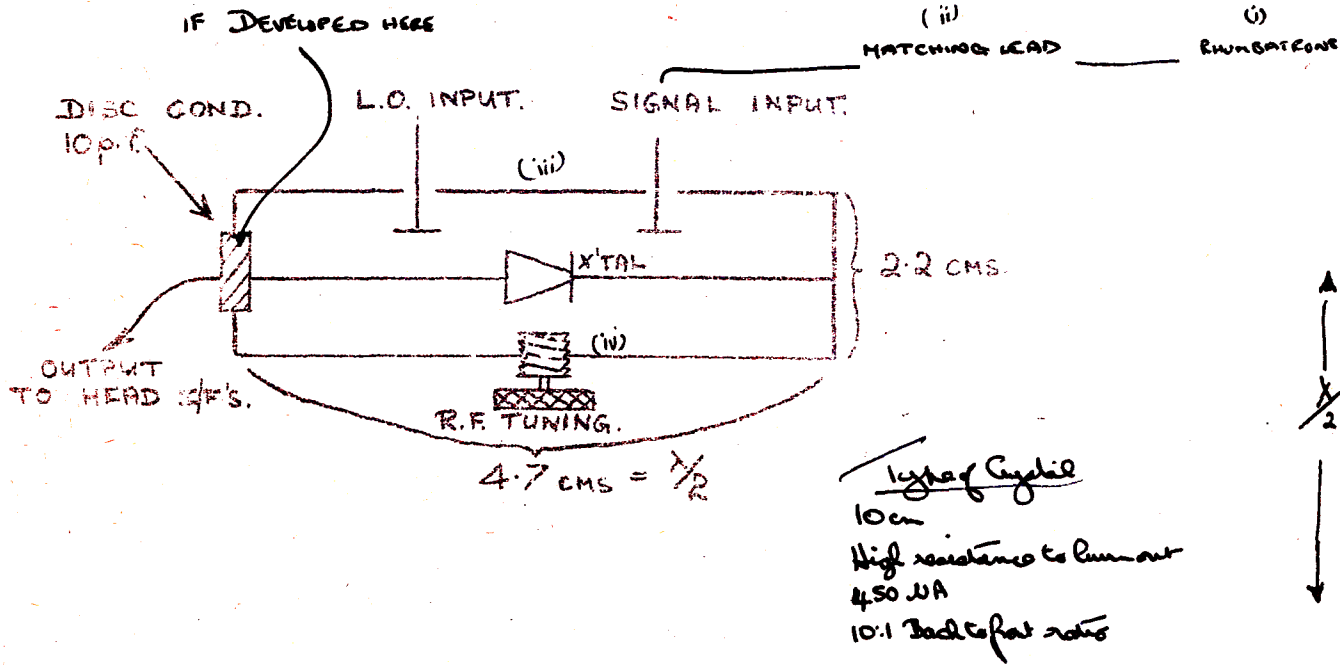 IF DEVELOPED HERE
(ii)
MATCHING LEAD
(i)
RHUMBATRONE
DISC COND.
10 p.f.
L.O. INPUT.
SIGNAL INPUT.
(iii)
X'TAL
2.2 CMS.
(iv)
OUTPUT
TO HEAD I/F'S.
R.F. TUNING.
4.7 CMS = λ/2
λ/2
Type of Crystal
10 cm
High resistance to burnout
450 µA
10:1 Back to front ratio